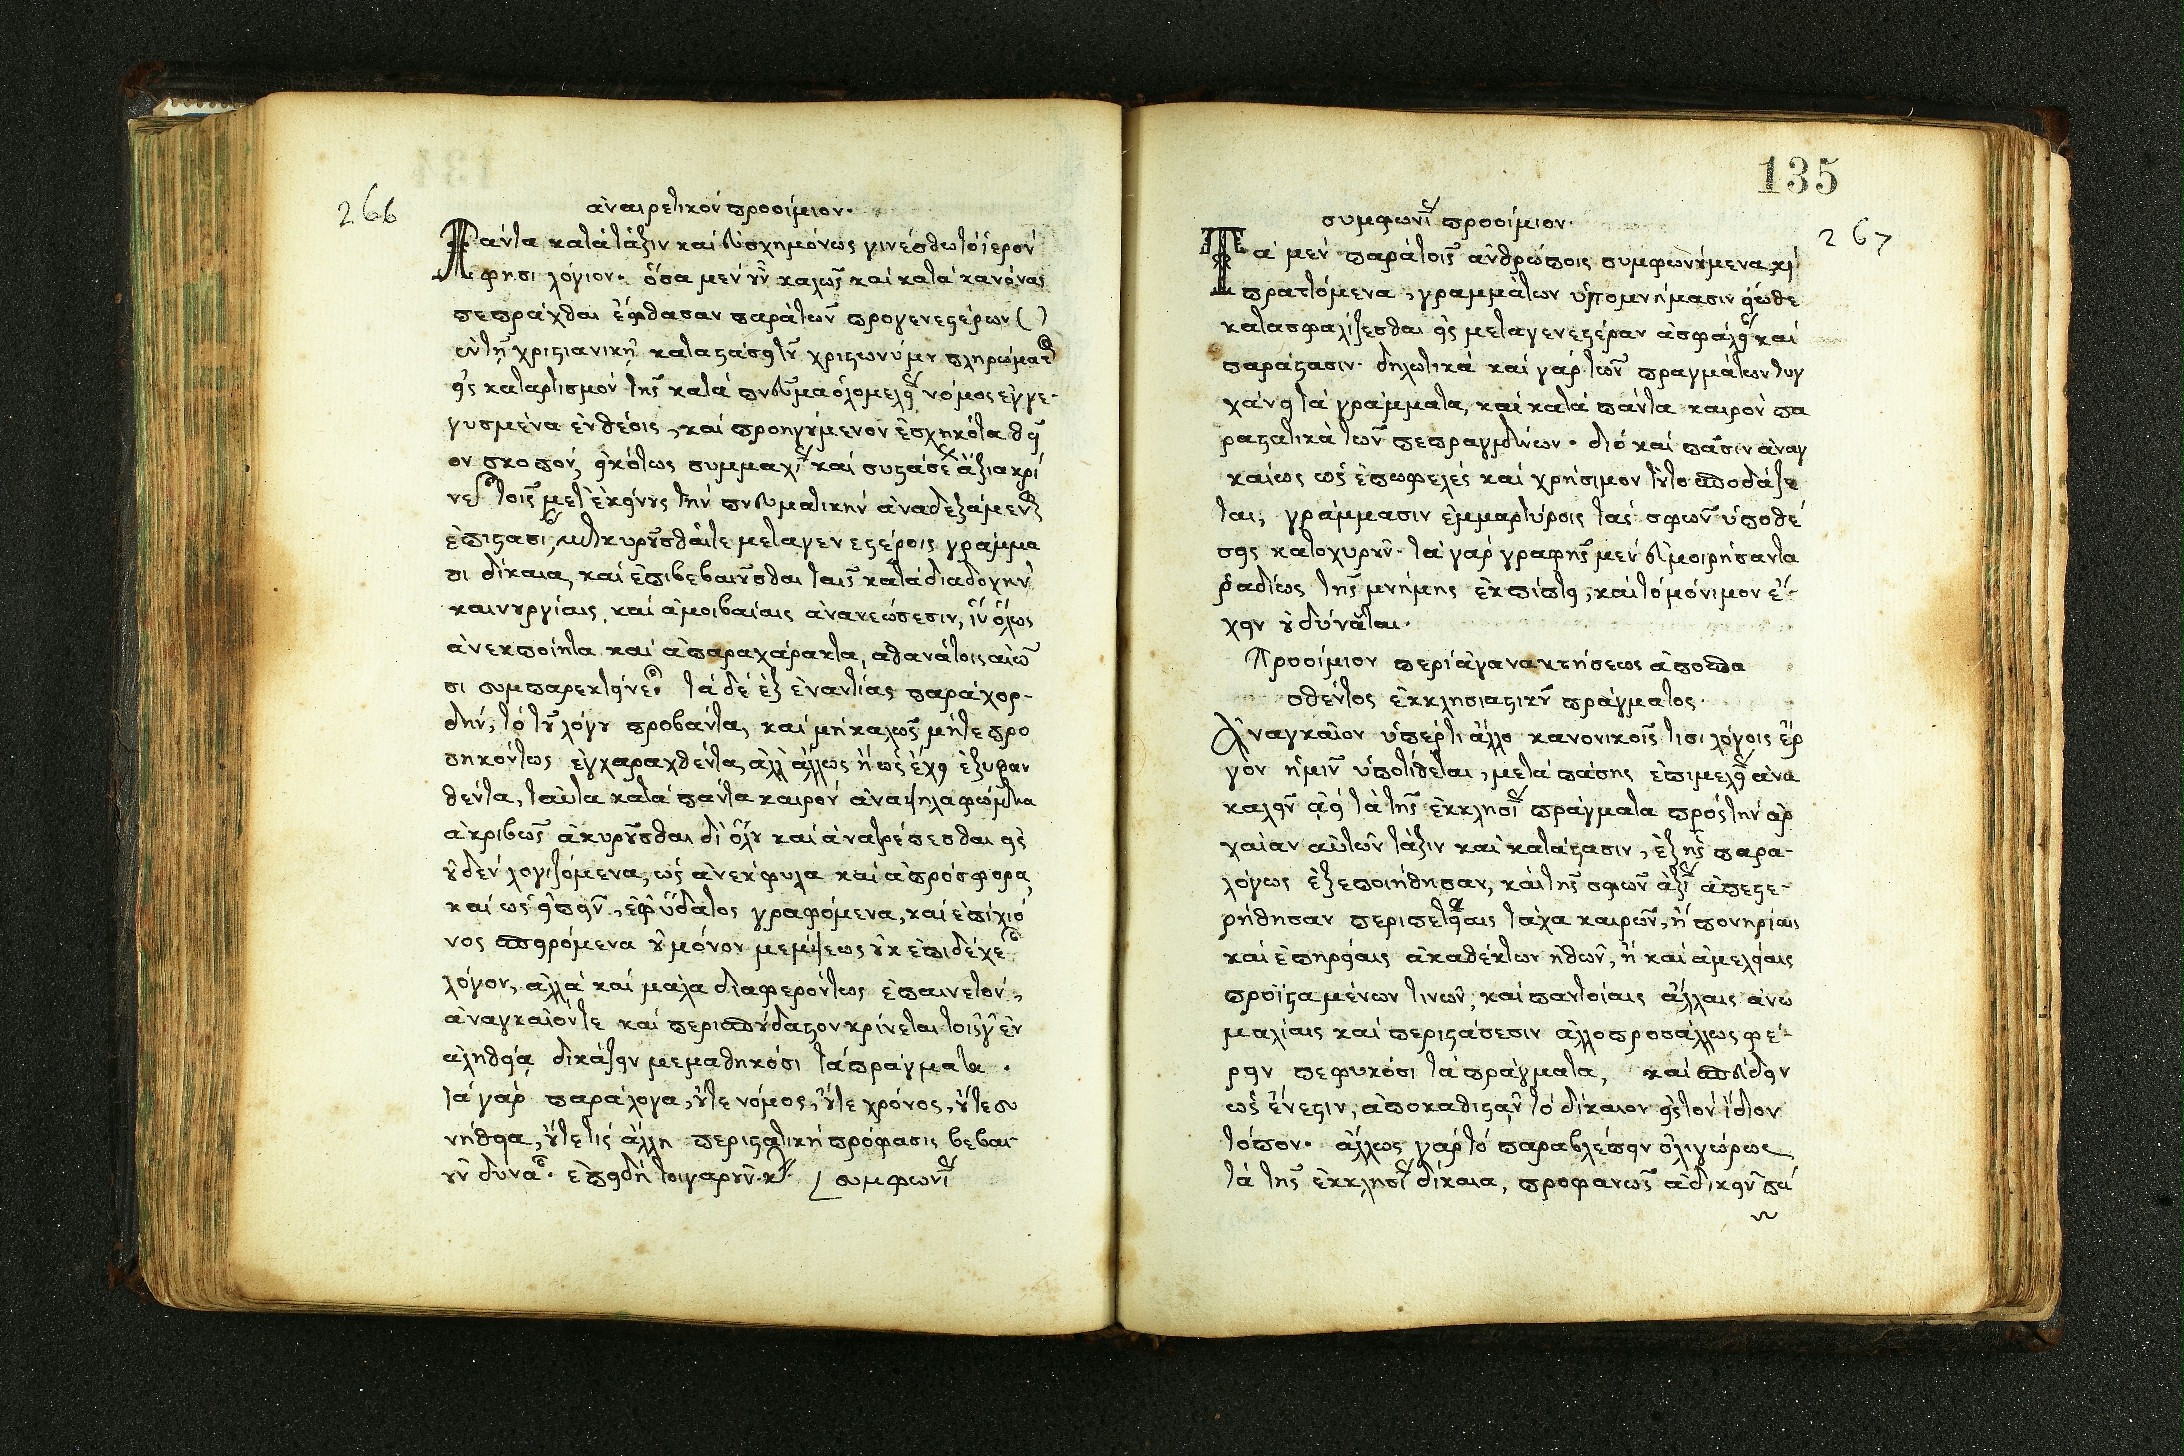 266
ἀναιρετικόν προοίμιον.
Πάντα κατά τάξιν καί εὐσχημόνως γινέσθω τό ἱερόν
φησι λόγιον. ὅσα μέν οὖν καλῶς καί κατά κανόνας
πεπράχθαι ἔφθασαν παρά τῶν προγενεστέρων ( )
ἐν τῇ χριστιανικῇ καταστάσει τοῦ χριστωνύμου πληρώματος
εἰς καταρτισμόν τῆς κατά πνεῦμα ὁλομελείας νόμος ἐγγε-
γυσμένα ἐνθέοις, καί προηγούμενον ἐσχηκότα θεῖ
ον σκοπόν, εἰκότως συμμαχίας καί συστάσεως ἄξια κρί
νεται τοῖς μετ' ἐκείνους τήν πνευματικήν ἀναδεξάμενοις
ἐπιστασίαν, κυροῦσθαί τε μεταγενεστέροις γράμμα
σι δίκαια, καί ἐπιβεβαιοῦσθαι ταῖς κατά διαδοχήν
καινουργίαις, καί ἀμοιβαίαις ἀνανεώσεσιν, ἵν' ὅλως
ἀνεκποίητα καί ἀπαραχάρακτα, ἀθανάτοις αἰῶ
σι συμπαρεκτείνεται. τά δέ ἐξ ἐναντίας παράχορ-
δην, τό τοῦ λόγου προβάντα, καί μή καλῶς μήτε προ
σηκόντως ἐγχαραχθέντα, ἀλλ' ἄλλως ἤ ὡς ἔχει ἐξυφαν
θέντα, ταῦτα κατά πάντα καιρόν ἀναψηλαφώμενα
ἀκριβῶς ἀκυροῦσθαι δι' ὅλου καί ἀνατρέπεσθαι εἰς
οὐδέν λογιζόμενα, ὡς ἀνέκφυλα καί ἀπρόσφορα,
καί ὡς εἰπεῖν, ἐφ' ὕδατος γραφόμενα, καί ἐπί χιό
νος σπειρόμενα οὐ μόνον μέμψεως οὐκ ἐπιδέχεται
λόγον, ἀλλά καί μάλα διαφερόντως ἐπαινετόν,
ἀναγκαῖόν τε καί περισπούδαστον κρίνεται τοῖς γ' ἐν
ἀληθείᾳ δικάζειν μεμαθηκόσι τά πράγματα.
τά γάρ παράλογα, οὔτε νόμος, οὔτε χρόνος, οὔτε συ
νήθεια, οὔτε τίς ἄλλη περιστατική πρόφασις βεβαι-
οῦν δύναται. ἐπειδή τοιγαροῦν. κτλ. συμφωνίας
135
267
συμφωνίας προοίμιον.
Τά μέν παρά τοῖς ἀνθρώποις συμφωνούμενα καί
πραττόμενα, γραμμάτων ὑπομνήμασιν εἴωθε
κατασφαλίζεσθαι εἰς μεταγενεστέραν ἀσφάλειαν καί
παράστασιν. δηλωτικά καί γάρ τῶν πραγμάτων τυγ
χάνει τά γράμματα, καί κατά πάντα καιρόν πα
ραστατικά τῶν πεπραγμένων. διό καί πᾶσιν ἀναγ
καίως ὡς ἐπωφελές καί χρήσιμον τοῦτο σπουδάζε
ται, γράμμασιν ἐμμαρτύροις τάς σφῶν ὑποθέ
σεις κατοχυροῦν. τά γάρ γραφῆς μέν εὐμοιρήσαντα
ῥαδίως τῆς μνήμης ἐκπίπτει, καί τό μόνιμον ἔ-
χειν οὐ δύναται.
Προοίμιον περί ἀγανακτήσεως ἀποσπα
σθέντος ἐκκλησιαστικοῦ πράγματος.
Ἀναγκαῖον ὑπέρ τι ἄλλο κανονικοῖς τισι λόγοις ἔρ
γον ἡμῖν ὑποτίθεται, μετά πάσης ἐπιμελείας ἀνα
καλεῖν ἀεί τά τῆς ἐκκλησίας πράγματα πρός τήν ἀρ
χαίαν αὐτῶν τάξιν καί κατάστασιν, ἐξ ἧς παρα-
λόγως ἐξεποιήθησαν, καί τῆς σφῶν ἀξίας ἀπεστε-
ρήθησαν περιπετείαις τάχα καιρῶν, ἤ πονηρίαις
καί ἐπηρείαις ἀκαθέκτων ἠθῶν, ἤ καί ἀμελείαις
προϊσταμένων τινῶν, καί παντοίαις ἄλλαις ἀνω
μαλίαις καί περιστάσεσιν ἀλλοπροσάλλως φέ-
ρειν πεφυκόσι τά πράγματα, καί σπεύδειν
ὡς ἔνεστιν, ἀποκαθιστᾶν τό δίκαιον εἰς τόν ἴδιον
τόπον. ἄλλως γάρ τό παραβλέπειν ὀλιγώρως
τά τῆς ἐκκλησίας δίκαια, προφανῶς ἀδικεῖν ἐστί